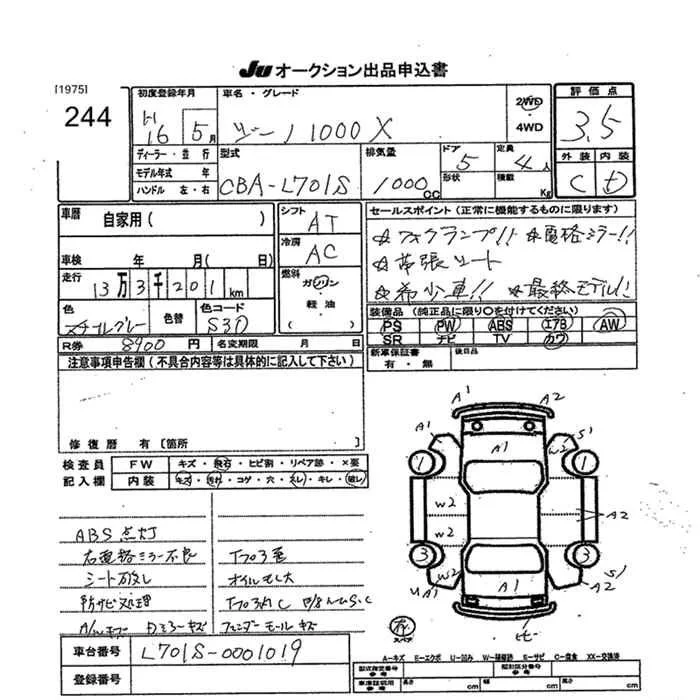 Ju オークション出品申込書
[1975]
244
初度登録年月
H 16 5月
車名・グレード
ジーノ 1000 X
2WD
4WD
評価点
3.5
ディーラー・並行
モデル年式 年
ハンドル 左・右
型式
CBA-L701S
排気量
1000 CC
ドア
5
形状
定員
4人
積載
Kg
外装 内装
C D
車歴 自家用( )
シフト AT
冷房 AC
セールスポイント(正常に機能するものに限ります)
☆フォグランプ!! ☆電格ミラー!!
☆革張シート
☆希少車!! ☆最終モデル!!
車検 年 月( 日)
走行 13万3千201 km
燃料
ガソリン
・
軽油
・
( )
色
スチールグレー
色替
色コード
S30
装備品(純正品に限り○を付けてください)
PS PW ABS エアB AW
SR ナビ TV カワ
R券 8900円
名変期限 月 日
新車保証書
有・無
後日品
注意事項申告欄(不具合内容等は具体的に記入して下さい)
修復歴 有[箇所 ]
検査員
記入欄
FW キズ・飛石・ヒビ割・リペア跡・×要
内装 キズ・汚れ・コゲ・穴・スレ・キレ・破レ
ABS点灯
右電格ミラー不良
シート破レ
防サビ処理
オイルモレ大
フェンダーモールキズ
A1 A2
A1 A1 S1
W2 W2
1 1
W2
W2 A2
3 3
W2 A1 W2 S1
UA1 A2
スペア
車台番号 L701S-0001019
登録番号
A—キズ E—エクボ U—凹み W—補修跡 S—サビ C—腐食 XX—交換済
型式指定番号
参考
類別区分番号
参考
車庫証明用
参考
長さ cm
幅 cm
高さ cm